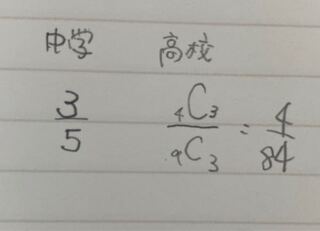 中学 高校
3/5 ₄C₃/₉C₃ = 4/84